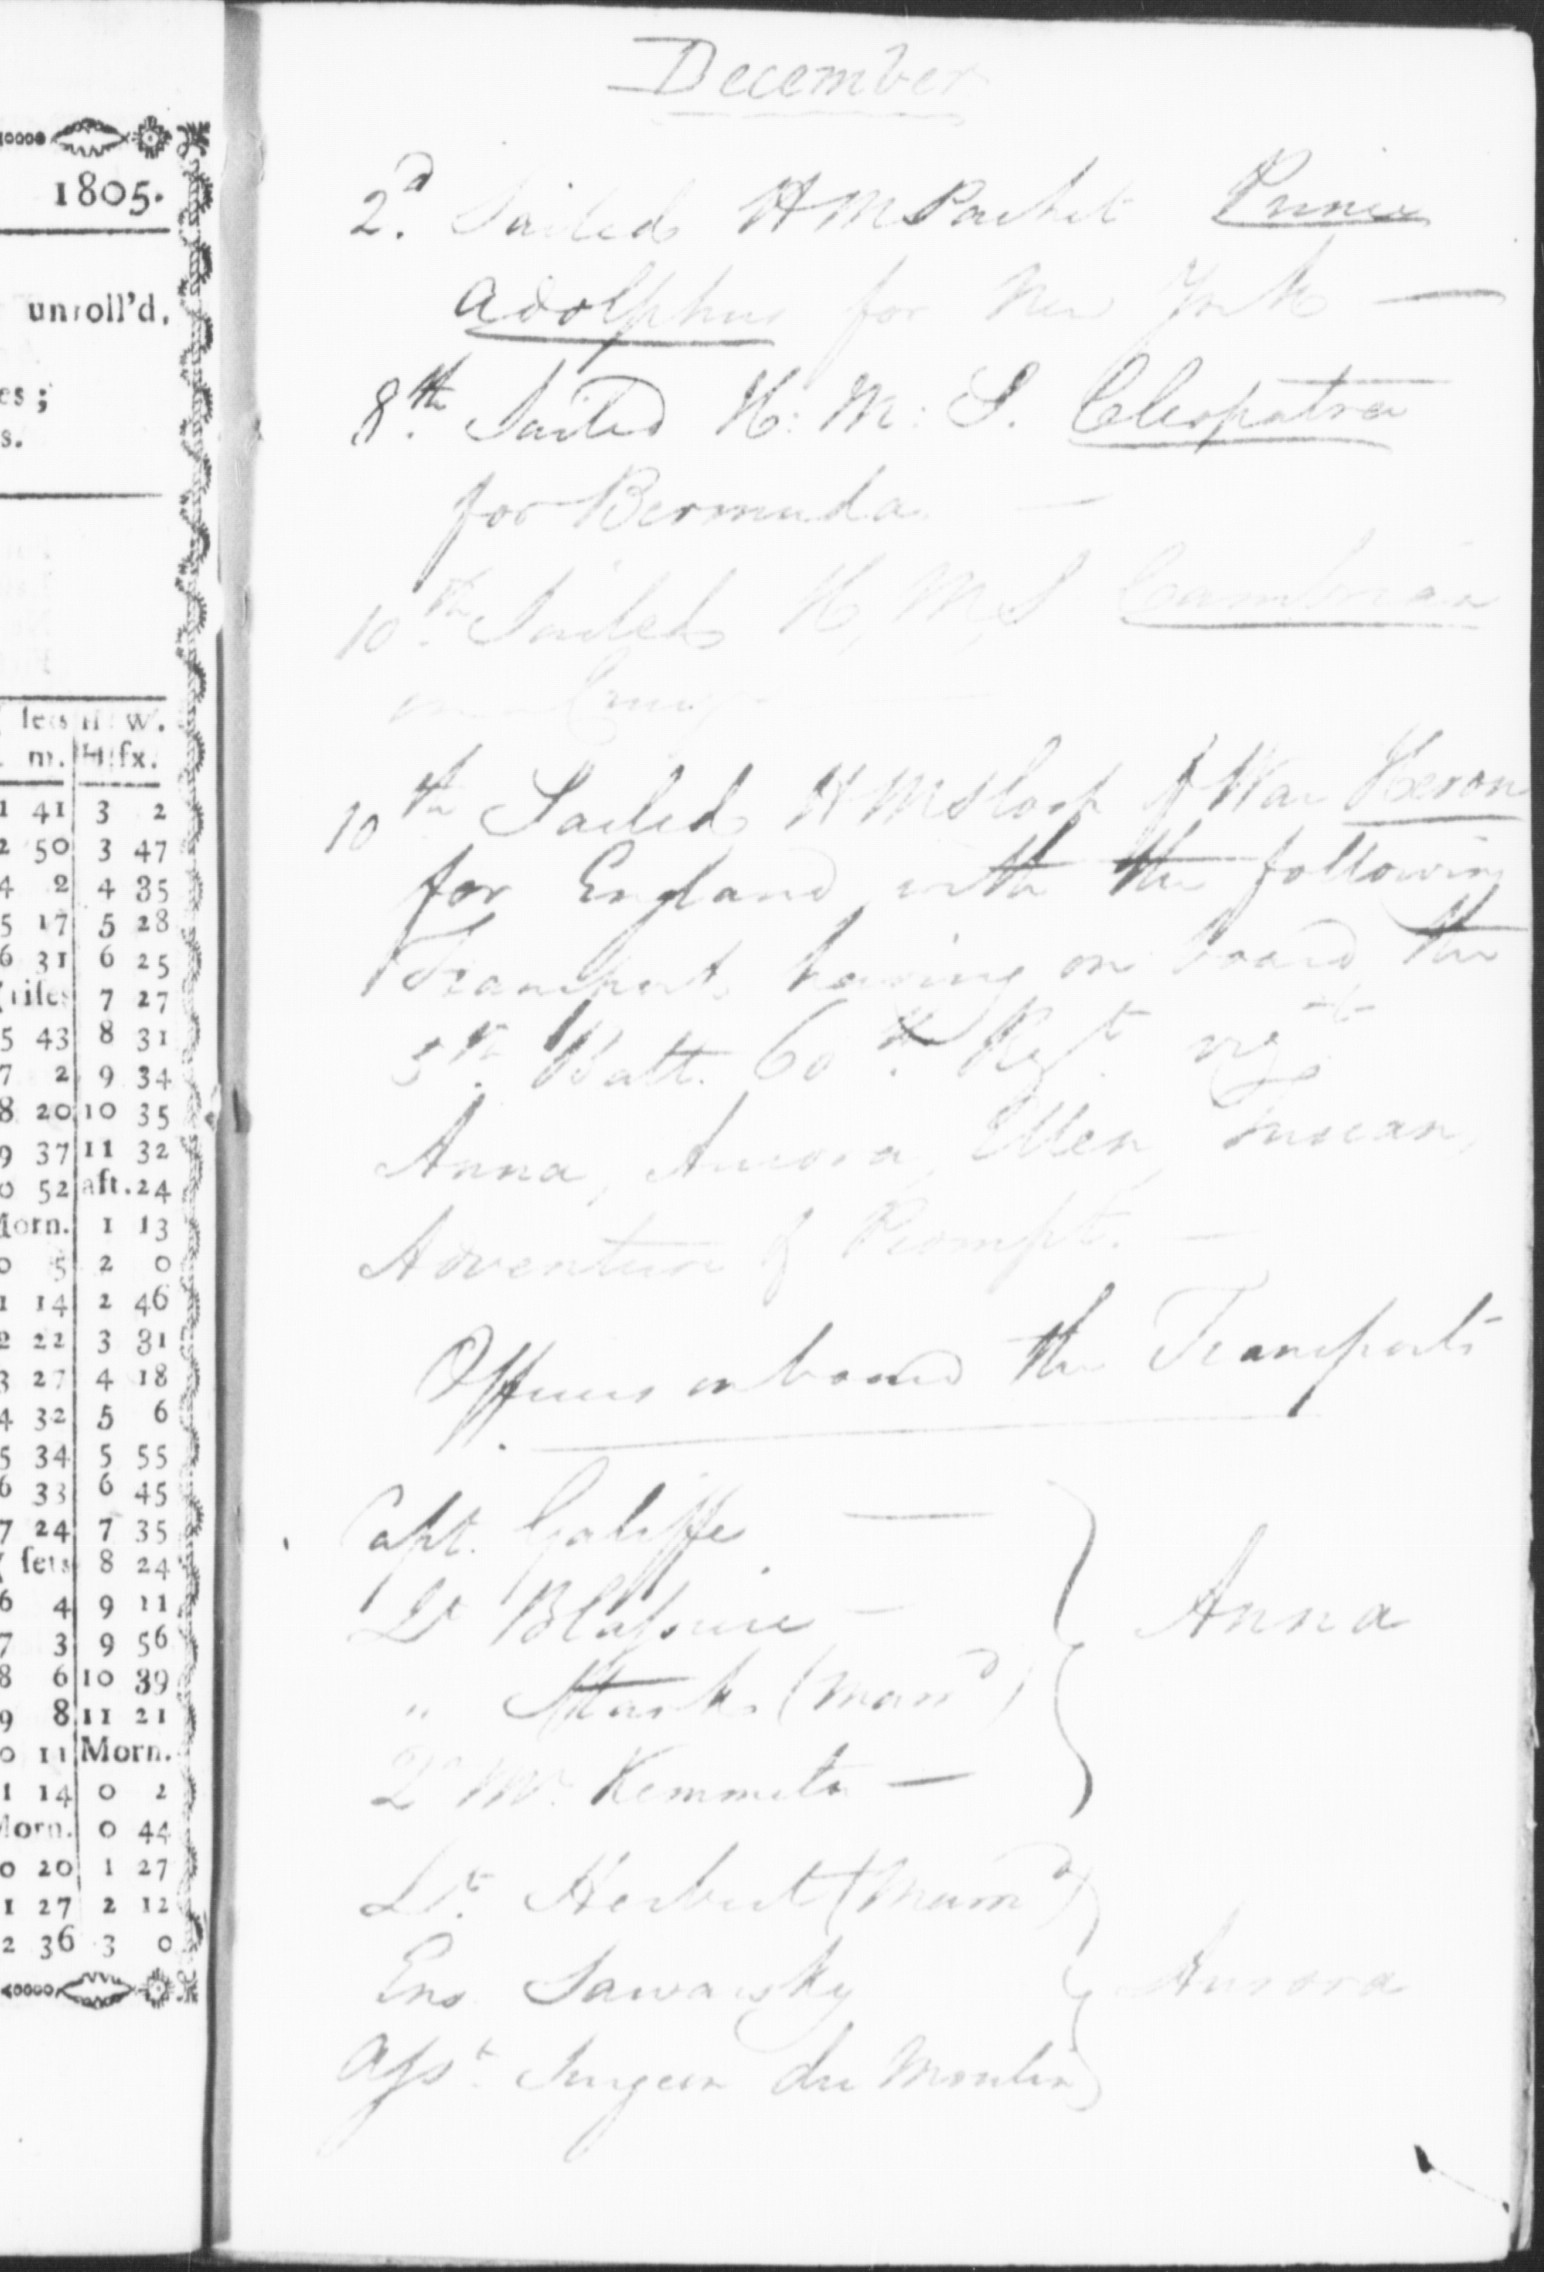 1805.
unroll'd,
es;
s.
sets H. W.
m. H fx.
1 41 3 2
2 50 3 47
4 2 4 35
5 17 5 28
6 31 6 25
rises 7 27
5 43 8 31
7 2 9 34
8 20 10 35
9 37 11 32
0 52 aft. 24
Morn. 1 13
0 5 2 0
1 14 2 46
2 22 3 31
3 27 4 18
4 32 5 6
5 34 5 55
6 33 6 45
7 24 7 35
sets 8 24
6 4 9 11
7 3 9 56
8 6 10 39
9 8 11 21
0 11 Morn.
1 14 0 2
Morn. 0 44
0 20 1 27
1 27 2 12
2 36 3 0
December
2d. Sailed H M Packet Prince
Adolphus for New York —
8th. Sailed H: M: S. Cleopatra
for Bermuda —
10th. Sailed H, M, S Cambrian
on a Cruize —
10th Sailed H M Sloop of War Heron
for England with the following
Transports having on board the
5th. Batt. 60th. Regt. vizt
Anna, Aurora, Ellen, Tuscan,
Adventure & Prompt. —
Officers on board the Transports
Capt. Galiffe —
Lt Blassiere —
" Starks (marrd)
Qr Mr. Kemmeter —
Anna
Lt. Herbert (Marrd)
Ens. Sawatsky
Asst. Surgeon du Moulin
Aurora